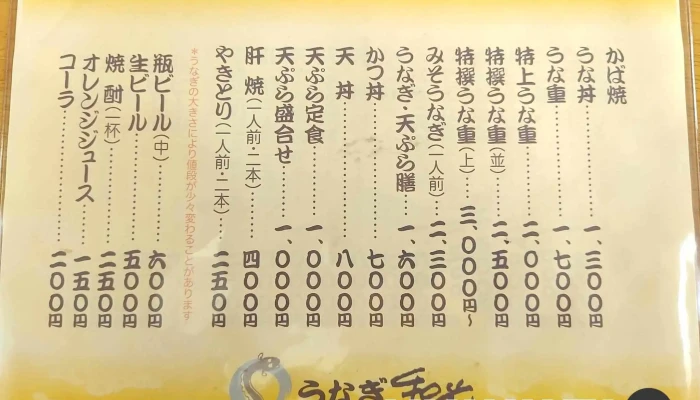 かば焼
うな丼…………一、三〇〇円
うな重…………一、七〇〇円
特上うな重…………二、〇〇〇円
特撰うな重（並）…………二、五〇〇円
特撰うな重（上）……三、〇〇〇円〜
みそうなぎ（一人前）……二、三〇〇円
うなぎ・天ぷら膳……一、六〇〇円
かつ丼…………七〇〇円
天丼…………八〇〇円
天ぷら定食…………一、〇〇〇円
天ぷら盛合せ…………一、〇〇〇円
肝焼（一人前・二本）……四〇〇円
やきとり（一人前・二本）……二五〇円
＊うなぎの大きさにより値段が少々変わることがあります
瓶ビール（中）…………六〇〇円
生ビール…………五〇〇円
焼酎（一杯）…………二五〇円
オレンジジュース……一五〇円
コーラ…………二〇〇円
うなぎ